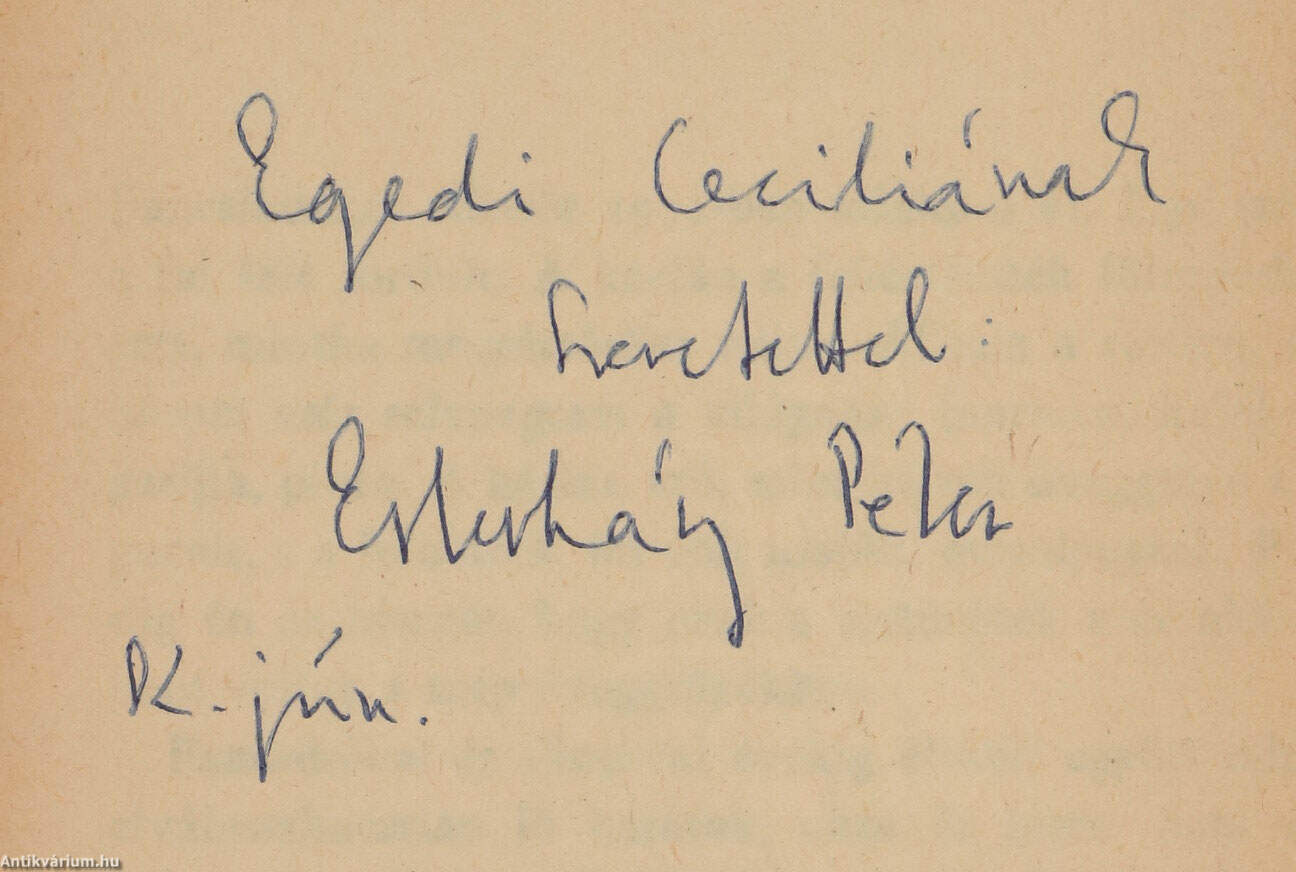 Egedi Ceciliának
szeretettel:
Esterházy Péter
jún.
Antikvárium.hu